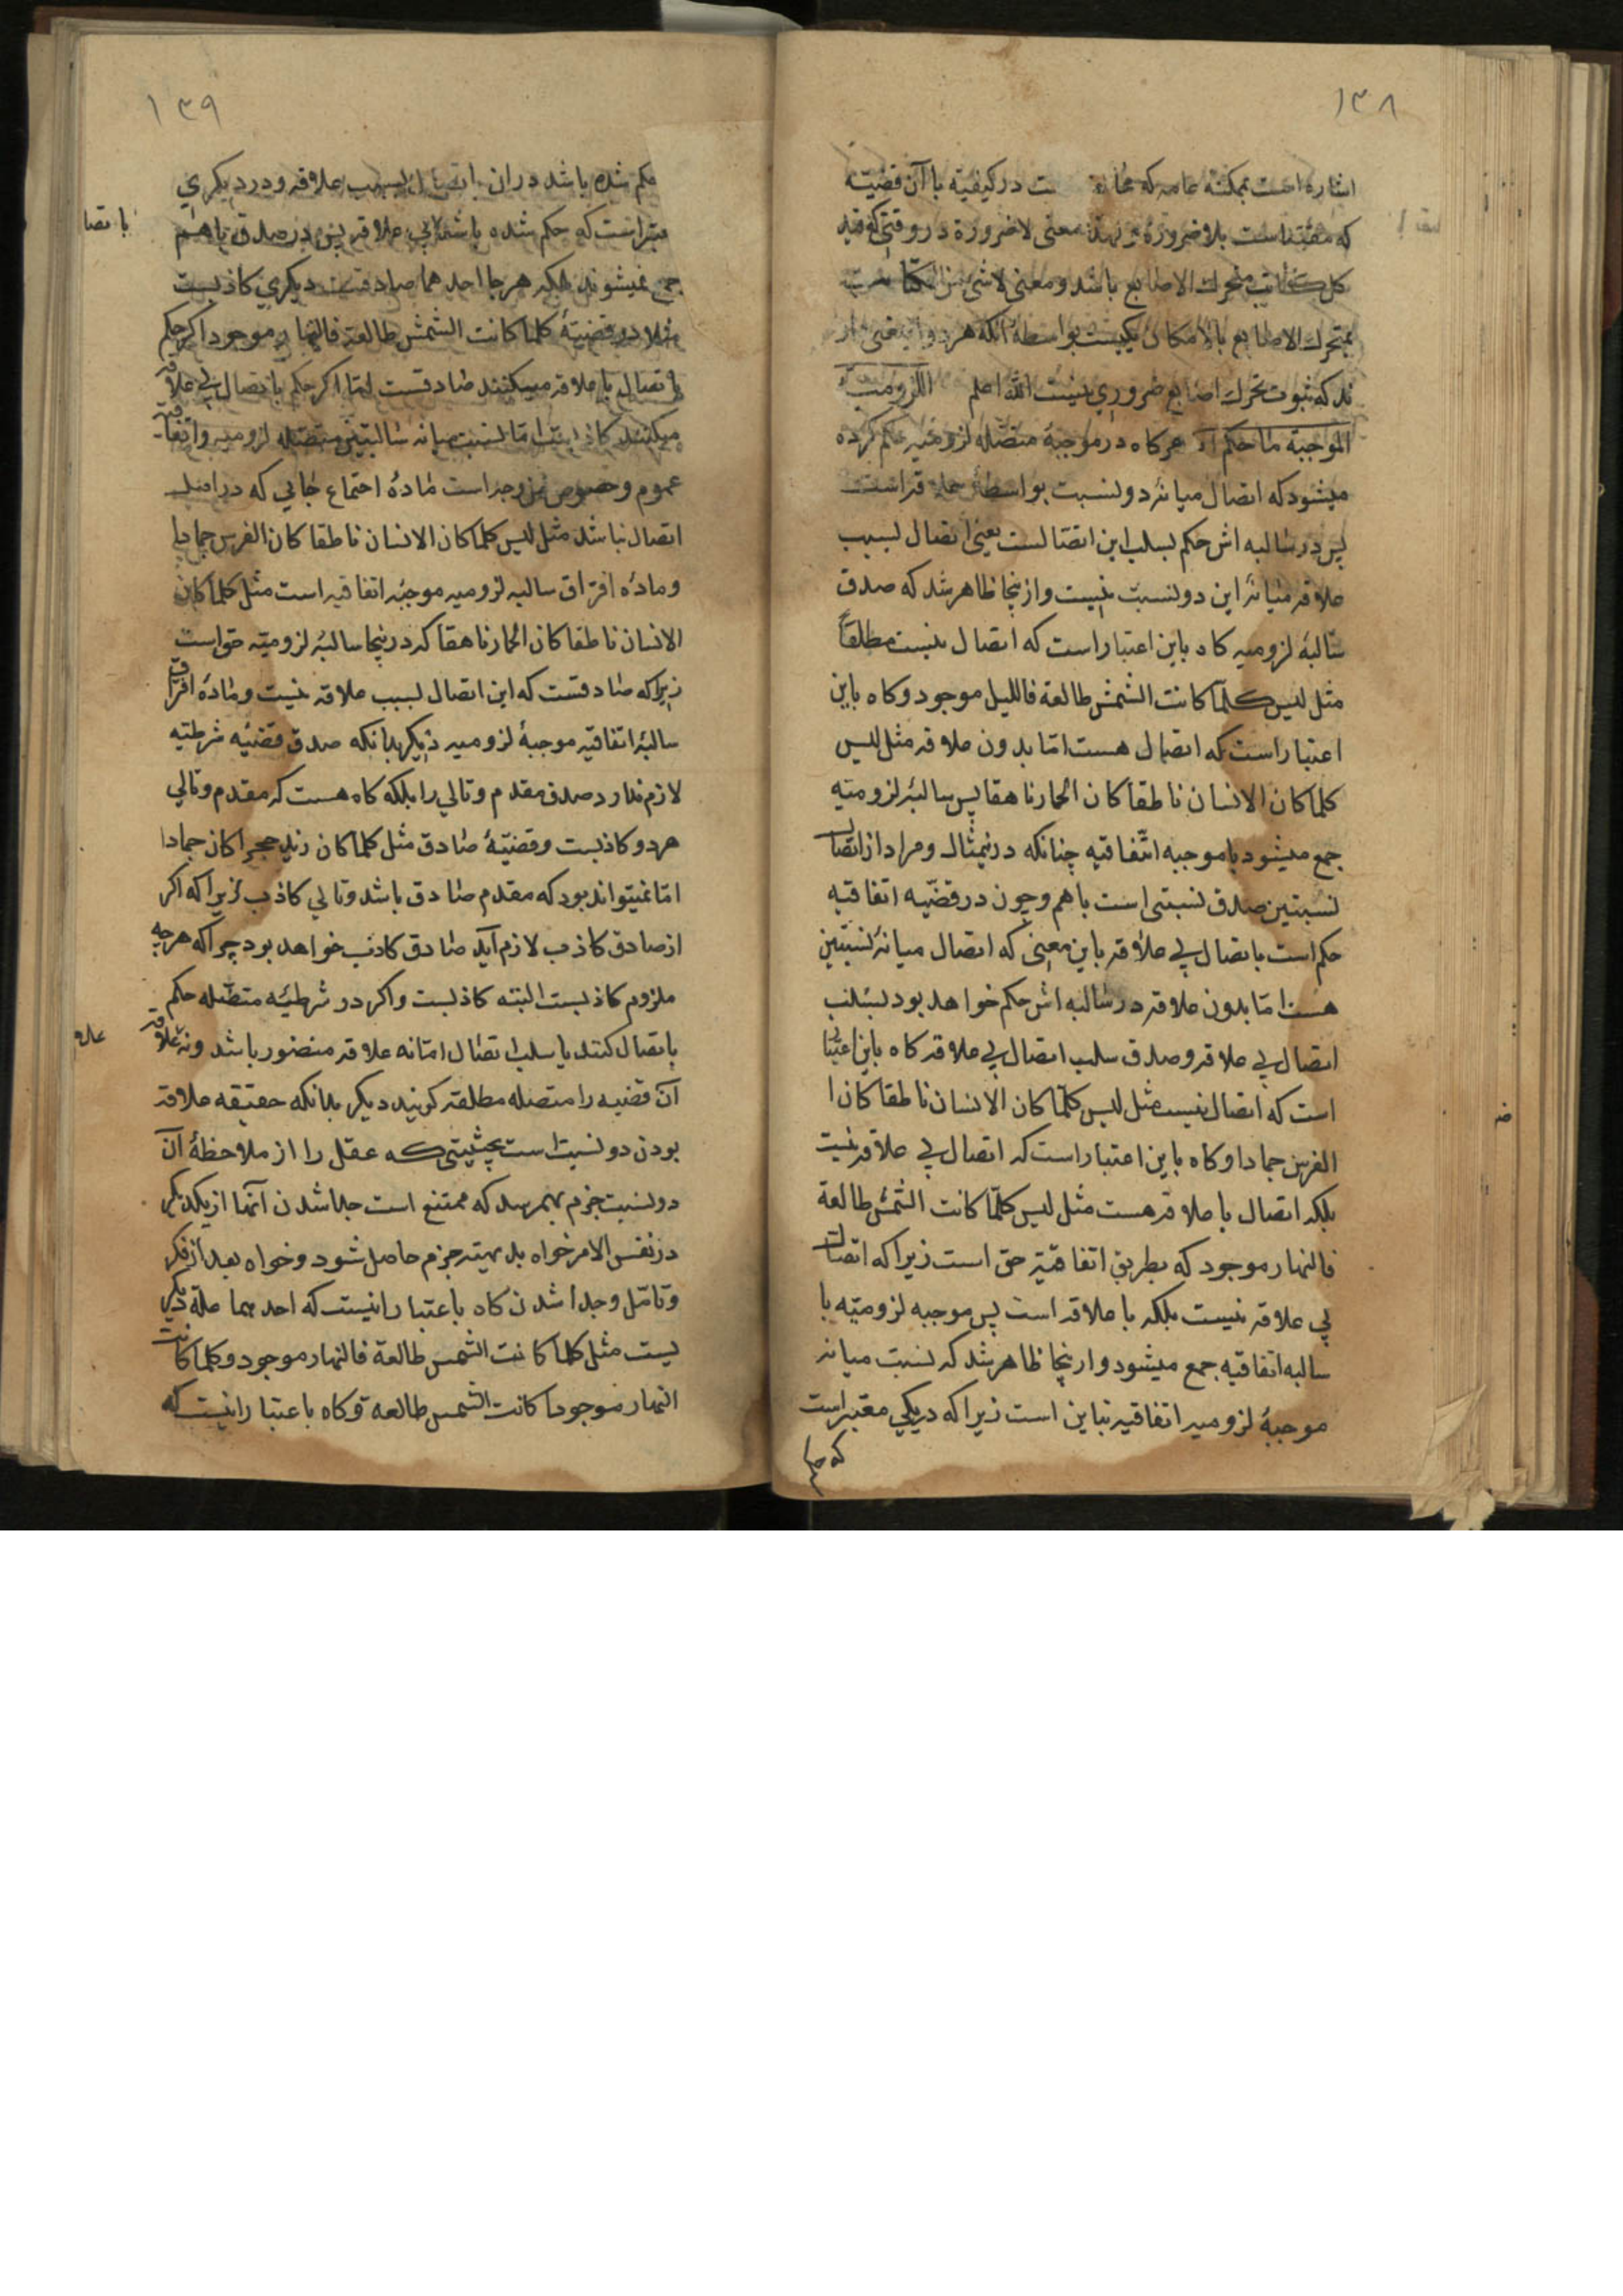 ۱۳۸
اشاره است بممکنه عامه که مخالف ست در کیفیه با آن قضیه
که مقید است بلا ضرورة معنی لا ضرورة در وقتی که قید
کل کاتب متحرک الاصابع باشد و معنی لا شئ من الکاتب
بمتحرک الاصابع بالامکان یکیست بواسطهٔ آنکه هر دو اینمعنی دار
ند که ثبوت تحرک اصابع ضروری نیست الله اعلم اللزومیة
الموجبة ما حکم هرکاه در موجبهٔ متصله لزومیه حکم کرده
میشود که اتصال میانهٔ دو نسبت بواسطهٔ علاقه است
پس در سالبه اش حکم بسلب این اتصالست یعنی اتصال بسبب
علاقه میانهٔ این دو نسبت نیست و ازینجا ظاهر شد که صدق
سالبهٔ لزومیه کاه باین اعتبار است که اتصال نیست مطلقاً
مثل لیس کلما کانت الشمس طالعة فاللیل موجود و کاه باین
اعتبار است که اتصال هست اما بدون علاقه مثل لیس
کلما کان الانسان ناطقا کان الحمار ناهقا پس سالبهٔ لزومیه
جمع میشود با موجبه اتفاقیه چنانکه درینمثال و مراد از اتصال
نسبتین صدق نسبتی است با هم و چون در قضیه اتفاقیه
حکم است باتصال بی علاقه باین معنی که اتصال میانهٔ نسبتین
هست اما بدون علاقه در سالبه اش حکم خواهد بود بسلب
اتصال بی علاقه و صدق سلب اتصال بی علاقه کاه باین اعتبار
است که اتصال نیست مثل لیس کلما کان الانسان ناطقا کان ا
الفرس جمادا و کاه باین اعتبار است که اتصال بی علاقه نیست
بلکه اتصال با علاقه هست مثل لیس کلما کانت الشمس طالعة
فالنهار موجود که بطریق اتفاقیه حق است زیرا که اتصال
بی علاقه نیست بلکه با علاقه است پس موجبه لزومیه با
سالبه اتفاقیه جمع میشود و ازینجا ظاهر شد که نسبت میانه
موجبهٔ لزومیه اتفاقیه تباین است زیرا که دریکی معتبر است
که حکم
۱۳۹
حکم شده باشد دران اتصال بسبب علاقه و در دیکری
معتبر است که حکم شده باشد بی علاقه پس در صدق باهم
باتصا
جمع نمیشوند بلکه هرجا احدهما صادقست دیکری کاذبست
مثلا در قضیهٔ کلما کانت الشمس طالعة فالنهار موجود اکر حکم
باتصال با علاقه میکنند صادقست اما اکر حکم باتصال بی علاقه
میکنند کاذبست اما نسبت میانه سالبتین متصله لزومیه و اتفاقیه
عموم و خصوص من وجه است مادهٔ اجتماع جایی که در اصل
اتصال نباشد مثل لیس کلما کان الانسان ناطقا کان الفرس جمادا
و مادهٔ افتراق سالبه لزومیه موجبه اتفاقیه است مثل کلما کان
الانسان ناطقا کان الحمار ناهقا که درینجا سالبهٔ لزومیه حق است
زیرا که صادقست که این اتصال بسبب علاقه نیست و مادهٔ افتراق
سالبهٔ اتفاقیه موجبهٔ لزومیه دیکر بدانکه صدق قضیه شرطیه
لازم ندارد صدق مقدم و تالی را بلکه کاه هست که مقدم و تالی
هردو کاذبست و قضیهٔ صادق مثل کلما کان زید حجرا کان جمادا
اما نمیتواند بود که مقدم صادق باشد و تالی کاذب زیرا که اکر
از صادق کاذب لازم آید صادق کاذب خواهد بود چرا که هرچه
ملزوم کاذبست البته کاذبست و اکر در شرطیه متصله حکم
باتصال کنند یا سلب اتصال اما نه علاقه منضور باشد و نه علاقه
آن قضیه را متصله مطلقه کویند دیکر بدانکه حقیقه علاقه
بودن دو نسبت است بحیثیتی که عقل را از ملاحظهٔ آن
دو نسبت جزم بهمرسد که ممتنع است جدا شدن آنها از یکدیکر
در نفس الامر خواه بدیهیته جزم حاصل شود و خواه بعد از فکر
و تامّل و جدا نشدن کاه باعتبار اینست که احدیهما علة دیکر
یست مثل کلما کانت الشمس طالعة فالنهار موجود و کلما کانت
النهار موجودا کانت الشمس طالعة و کاه باعتبار اینست که